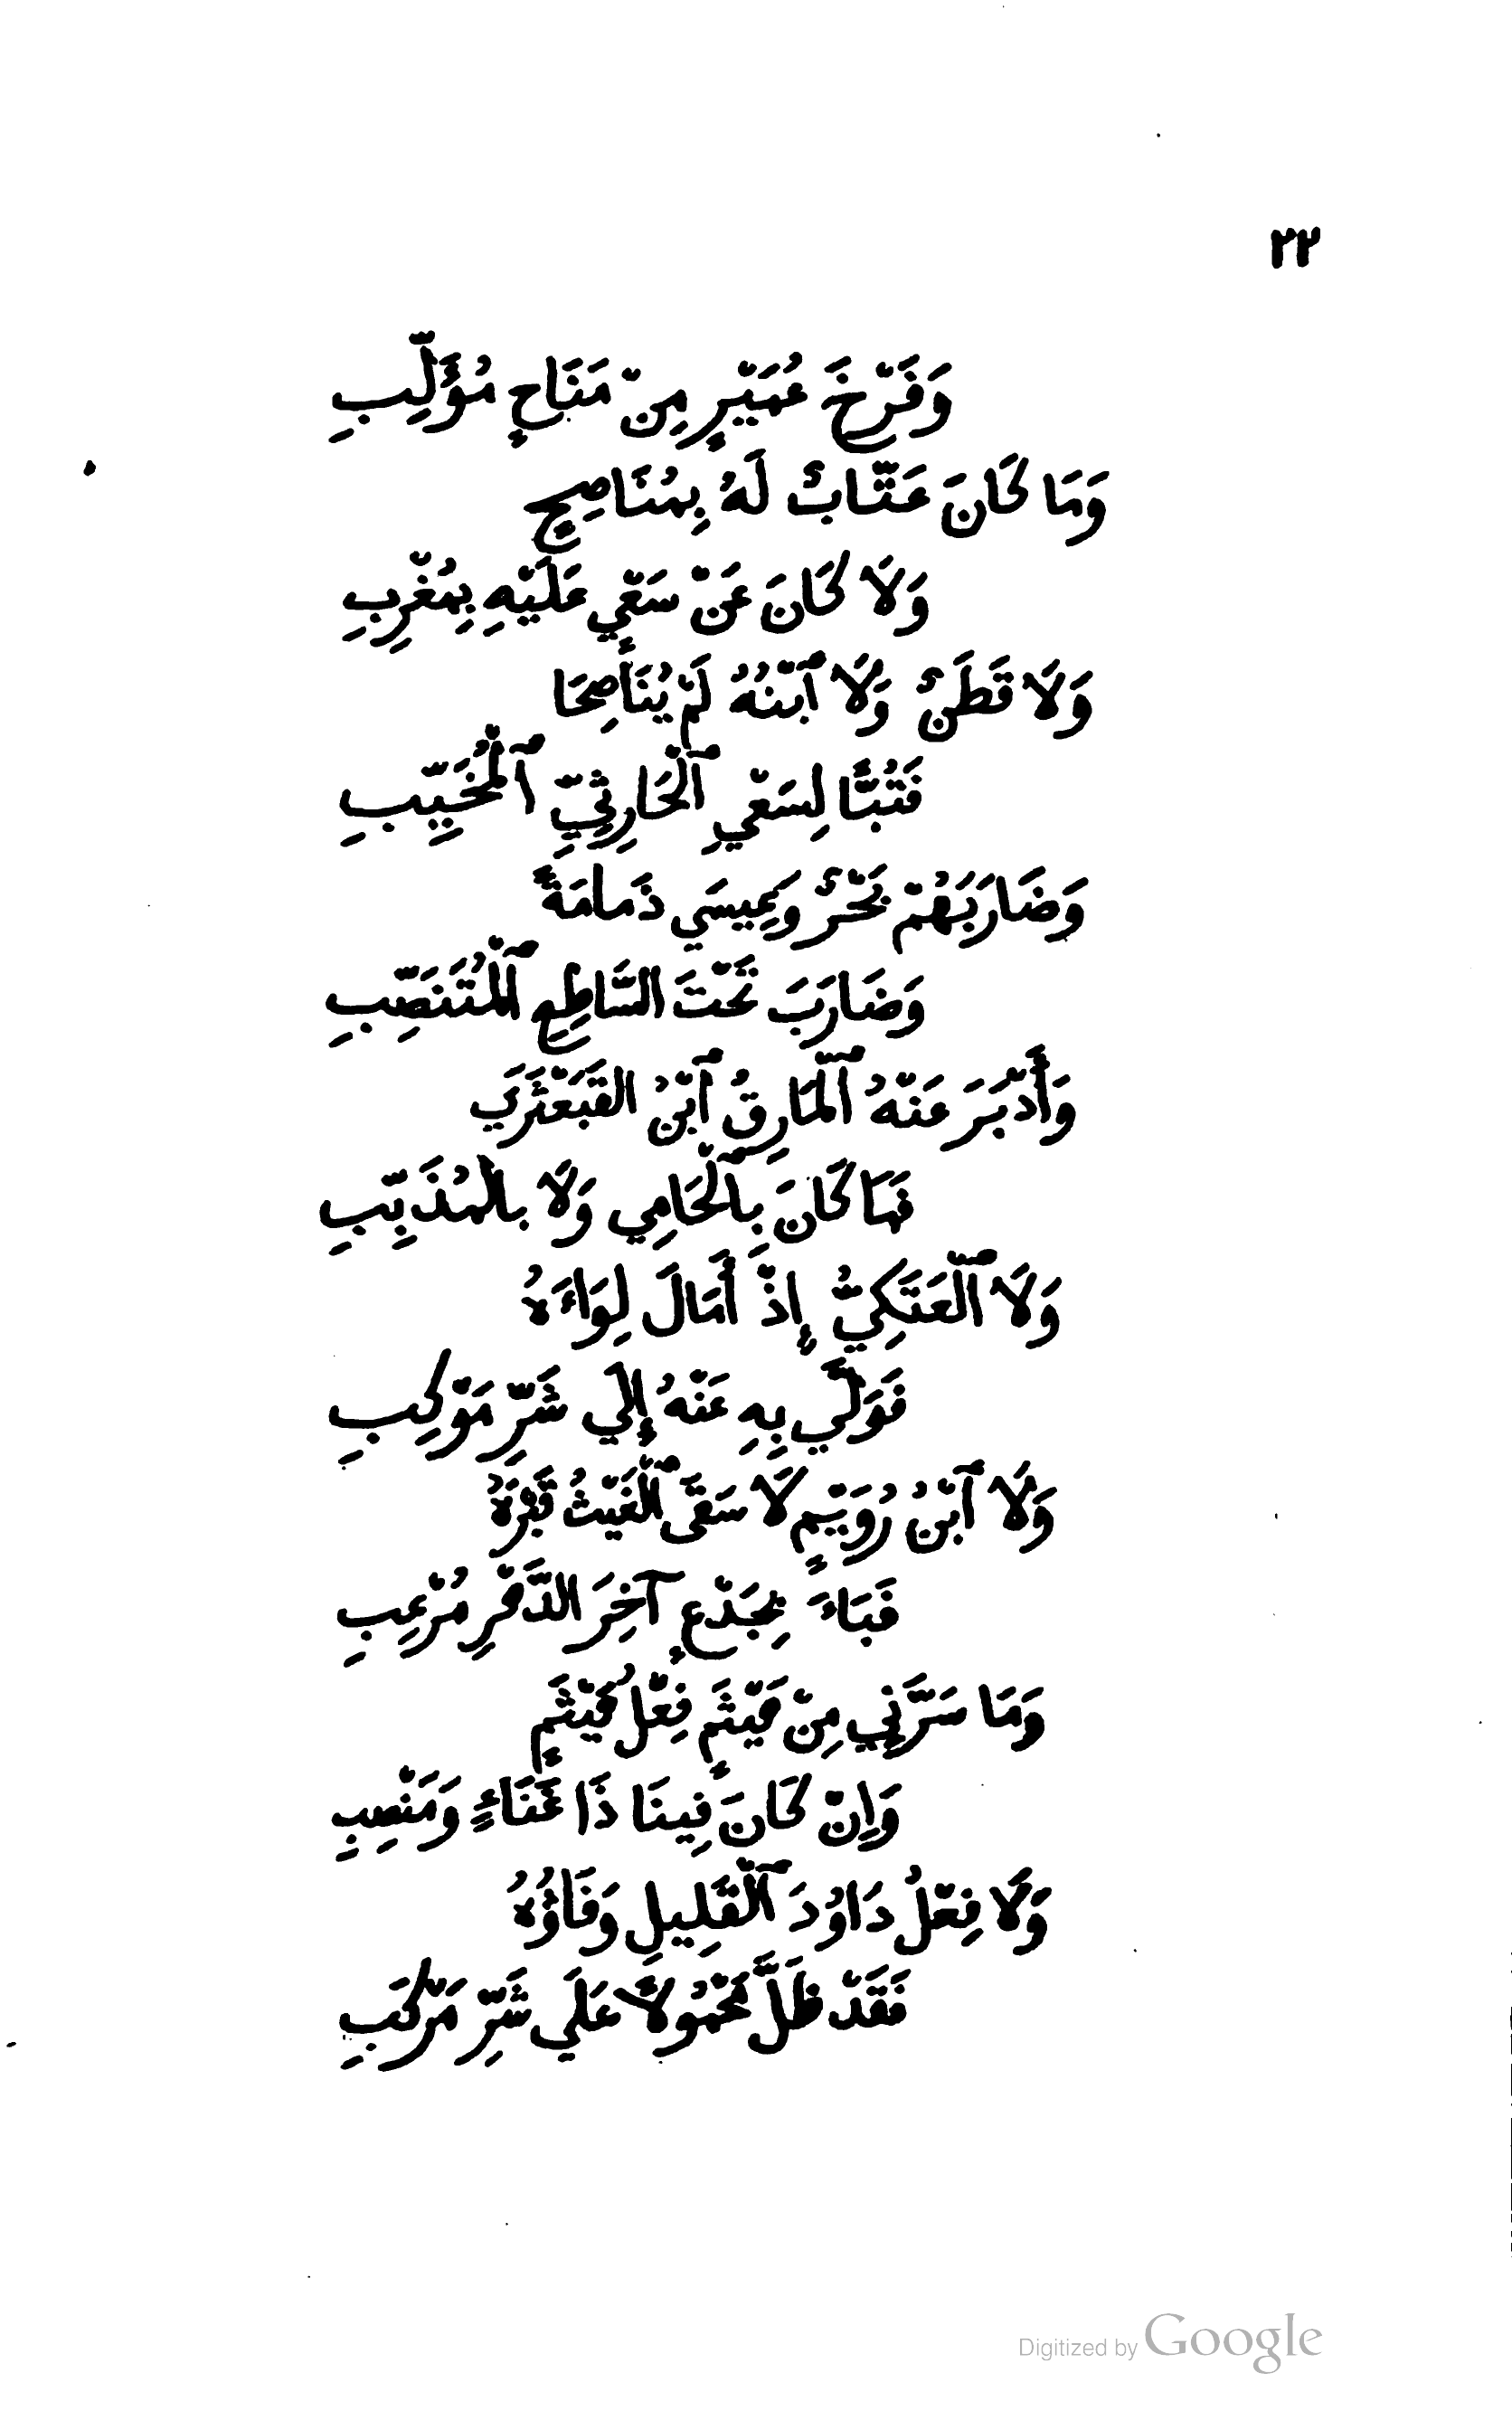 ٣٢
وَفَرْخَ عُمَيْرٍ مِنْ مَنَاحٍ مُؤَلِّبِ
وَمَا كَانَ عَتَّابٌ لَهُ بِمُنَاصِحٍ
وَلَا كَانَ عَنْ سَعْيٍ عَلَيْهِ بِمُغْرِبِ
وَلَا قَطَنٌ وَلَا ٱبْنُهُ لَمْ يُنَاصِحَا
فَتُبًّا لِسَعْيِ ٱلْحَارِثِيِّ ٱلْمُخَيَّبِ
وَضَارَبَهُمْ بَحْرٌ وَعِيسَي ذَمَامَةً
وَضَارَبَ تَحْتَ السَّاطِعِ ٱلْمُتَنَصِّبِ
وَأَدْبَرَ عَنْهُ ٱلْمَارِقُ ٱبْنُ القَبَعْثَرَي
فَمَا كَانَ بِٱلْحَامِي وَلَا بالمُذَبِّبِ
وَلَا ٱلْعَتَكِيُّ إِذْ أَمَالَ لِوَاءَهُ
تَوَلَّي بِهِ عَنْهُ إِلَي شَرِّ مَوْكِبِ
وَلَا ٱبْنُ رُوَيْمٍ لَا سَقَى ٱلْغَيْثُ قَبْرَهُ
فَبَاءَ بِجَدْعٍ آخِرَ الدَّهْرِ مُرْعِبِ
وَمَا سَرَّنِي مِنْ هَيْثَمٍ فِعْلُ هَيْثَمٍ
وَاِنْ كَانَ فِينَا ذَا غَنَاءٍ وَمَنْصِبِ
وَلَا فِعْلُ دَاوُدَ ٱلْقَلِيلِ وَفَاؤُهُ
فَقَدْ ظَلَّ مَحْمُولًا عَلَي شَرِّ مَرْكَبِ
Digitized by Google